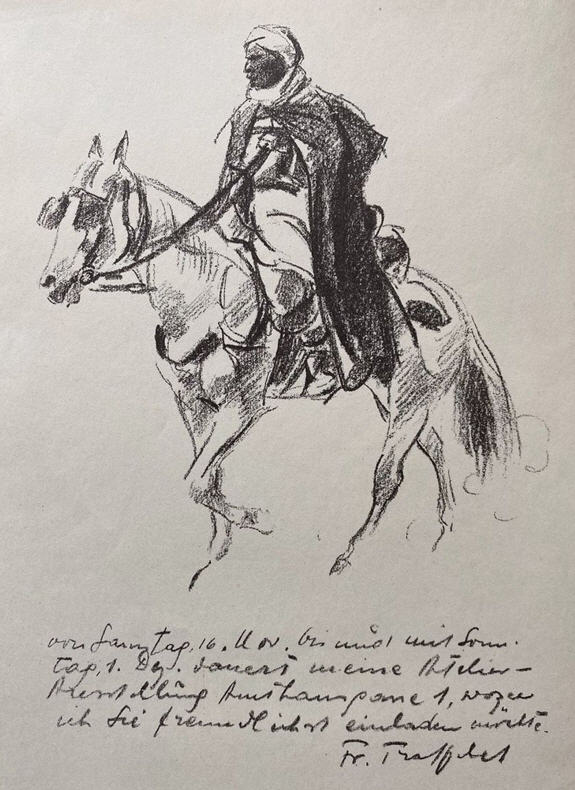 von Samstag, 16. Nov. bis und mit Sonn-
tag, 1. Dez. dauert meine Atelier-
Ausstellung Amthausgasse 1, wozu
ich Sie freundlichst einladen möchte.
Fr. Traffelet